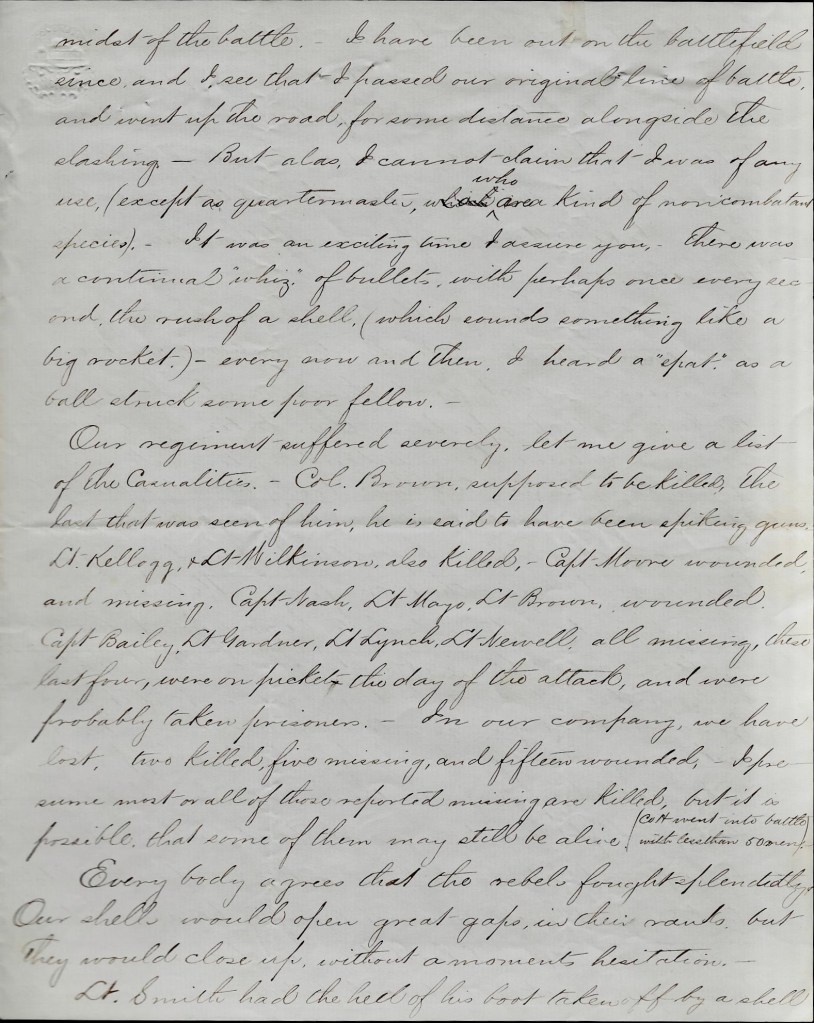 midst of the battle. – I have been out on the battlefield
since, and I see that I passed our original line of battle,
and went up the road, for some distance alongside the
slashing. – But alas, I cannot claim that I was of any
who
use, (except as quartermaster, which are a kind of noncombatant
species). – It was an exciting time I assure you, – There was
a continual "whiz" of bullets, with perhaps once every sec-
ond, the rush of a shell, (which sounds something like a
big rocket.) – every now and then, I heard a "spat" as a
ball struck some poor fellow. –
Our regiment suffered severely, let me give a list
of the Casualities. – Col. Brown, supposed to be killed, the
last that was seen of him, he is said to have been spiking guns.
Lt. Kellogg, & Lt Wilkinson, also killed, – Capt Moore wounded,
and missing. Capt Nash, Lt Mayo, Lt Brown, wounded.
Capt Bailey, Lt Gardner, Lt Lynch, Lt Newell, all missing, these
last four, were on picket the day of the attack, and were
probably taken prisoners. – In our company, we have
lost, two killed, five missing, and fifteen wounded, – I pre-
sume most or all of those reported missing are killed, but it is
possible, that some of them may still be alive. (Co H went into battle
with less than 50 men.)
Every body agrees that the rebels fought splendidly,
Our shells would open great gaps, in their ranks, but
they would close up, without a moments hesitation. –
Lt. Smith had the heel of his boot taken off by a shell